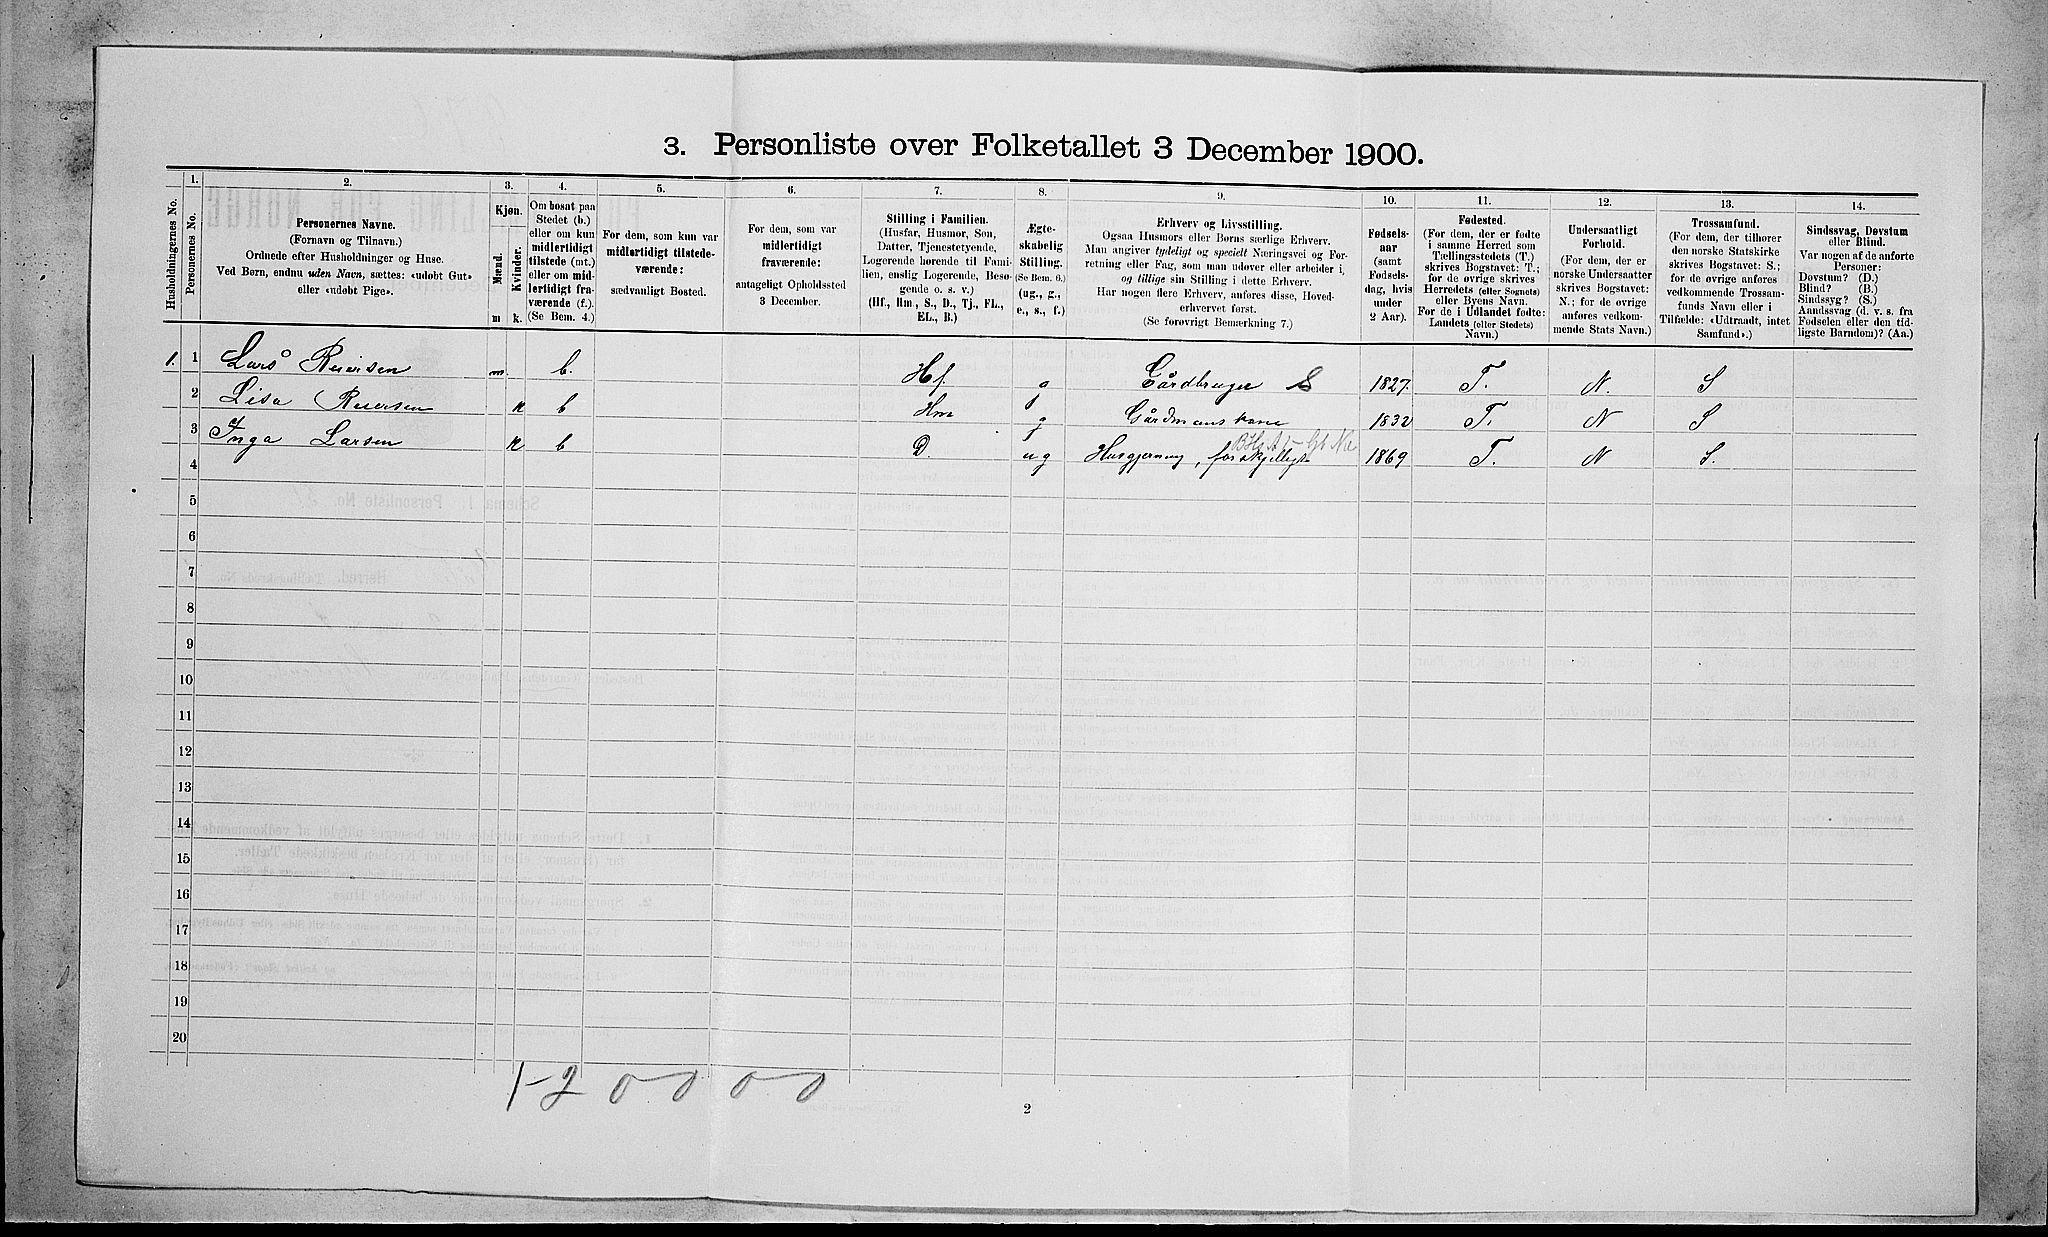 3. Personliste over Folketallet 3 December 1900.
1.
2.
3.
4.
5.
6.
7.
8.
9.
10.
11.
12.
13.
14.
Husholdningernes No.
Personernes No.
Personernes Navne.
(Fornavn og Tilnavn.)
Ordnede efter Husholdninger og Huse.
Ved Børn, endnu uden Navn, sættes: «udøbt Gut»
eller «udøbt Pige».
Kjøn.
Mænd.
Kvinder.
m
k.
Om bosat paa
Stedet (b.)
eller om kun
midlertidigt
tilstede (mt.)
eller om mid-
lertidigt fra-
værende (f.).
(Se Bem. 4.)
For dem, som kun var
midlertidigt tilstede-
værende:
sædvanligt Bosted.
For dem, som var
midlertidigt
fraværende:
antageligt Opholdssted
3 December.
Stilling i Familien.
(Husfar, Husmor, Søn,
Datter, Tjenestetyende,
Logerende hørende til Fami-
lien, enslig Logerende, Besø-
gende o. s. v.)
(Hf., Hm., S., D., Tj., FL.,
EL., B.)
Ægte-
skabelig
Stilling.
(Se Bem. 6.)
(ug., g.,
e., s., f.)
Erhverv og Livsstilling.
Ogsaa Husmors eller Børns særlige Erhverv.
Man angiver tydeligt og specielt Næringsvei og For-
retning eller Fag, som man udøver eller arbeider i,
og tillige sin Stilling i dette Erhverv.
Har nogen flere Erhverv, anføres disse, Hoved-
erhvervet først.
(Se forøvrigt Bemærkning 7.)
Fødsels-
aar
(samt
Fødsels-
dag, hvis
under
2 Aar).
Fødested.
(For dem, der er fødte
i samme Herred som
Tællingsstedets (T.)
skrives Bogstavet: T.;
for de øvrige skrives
Herredets (eller Sognets)
eller Byens Navn.
For de i Udlandet fødte:
Landets (eller Stedets)
Navn.)
Undersaatligt
Forhold.
(For dem, der er
norske Undersaatter
skrives Bogstavet:
N.; for de øvrige
anføres vedkom-
mende Stats Navn.)
Trossamfund.
(For dem, der tilhører
den norske Statskirke
skrives Bogstavet: S.;
for de øvrige anføres
vedkommende Trossam-
funds Navn eller i
Tilfælde: «Udtraadt, intet
Samfund».)
Sindssvag, Døvstum
eller Blind.
Var nogen af de anførte
Personer:
Døvstum? (D.)
Blind? (B.)
Sindssyg? (S.)
Aandssvag (d. v. s. fra
Fødselen eller den tid-
ligste Barndom)? (Aa.)
1. 1 Lars Reiersen m. b. Hf. g Gårdbruger S 1827. T. N. S
2 Lisa Reiersen k b Hm g Gårdmanskone 1832 T. N S
3 Inga Larsen k b D. ug Husgjerning, forskjelligt 1869 T. N S.
4
5
6
7
8
9
10
11
12
13
14
15
16
17
18
19
20
1-2 0-0 0-0
2